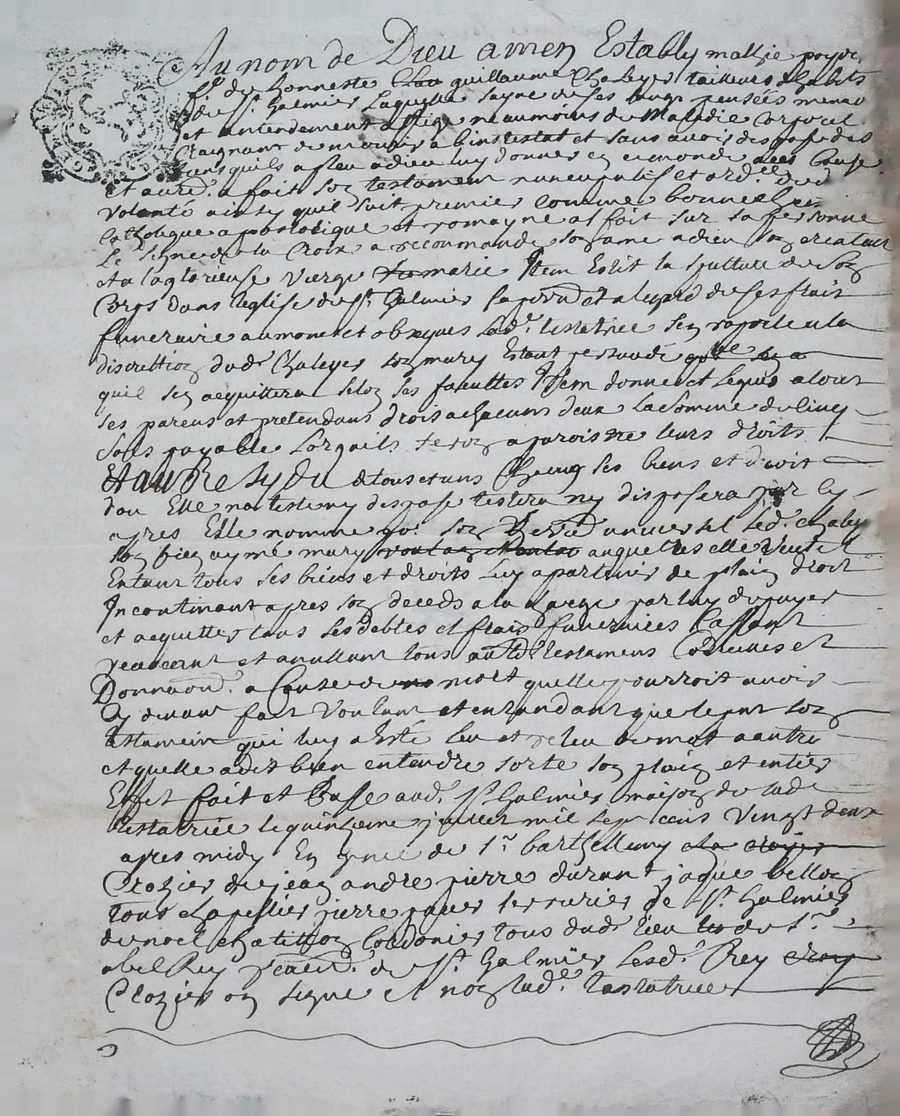 Au nom de Dieu amen Estably
fe de honneste guillaume Chaleyer tailleurs d'habits
de St Galmier Laquelle sayne de ses sens pensées memoe
et antendement attige neaumoins de Maladie corporel
Craignant de mourir abinstestat et sans avoir disposé des
biens quils a pleu a dieu luy donner en ce monde
a fait son testament nuncupatif et
volanté ainsy quil suit premier comme bonne
catholique apostolique et romayne a fait sur sa personne
Le signe de la Croix a recommandé son ame a dieu son createur
et a la glorieuse vierge marie Item Eslit la sepulture de son
Corps dans l'eglise de St Galmier et a legard de ses frais
funeraire aumones et obseques lade testatrice sen raporte a la
discretion dudt Chaleyer son mary Estant persuadé
quil sen acquittera selon ses facultes Item donne et legue a tous
ses parens et pretendans drois a chacuns deux la somme de cinq
sous payable lorsquils feron aparoistre leurs droits
Et au Residu de tous et uns Chacuns ses biens et droit
dou Elle na testé ny disposé testera ny disposera par cy
apres Elle nomme po. son heritié universel led. chaleyer
son bien aymé mary auquel elle veut
Entant tous ses biens et droits luy apartenir de plain droit
Incontinant apres son deceds a la charge par luy de payer
et acquitter tous les debtes et frais funeraires Cassant
revocant et anullant tous autre testamens Codicilles et
Donnaon. a Cause de mort quelle pourroit avoir
Cy devant fait Voulant et entandant que le pnt son
testament qui luy a esté leu et releu de mot a autre
et quelle a dit bien entendre sorte son plain et entier
Effet fait et Passé aud. St Galmier maison de lade
testatrice le quinzieme juillet mil sept cens vingt deux
apres midy En pnce de Sr. barthellemy
Crozier de jean andre pierre durant jaque
tous Chapellier pierre serrurier de St Galmier
de noel Chatillon Cordonier tous dudt lieu et de Sr.
abel Rey de St Galmier lesd. Rey
Crozier on signe et non lade testatrice